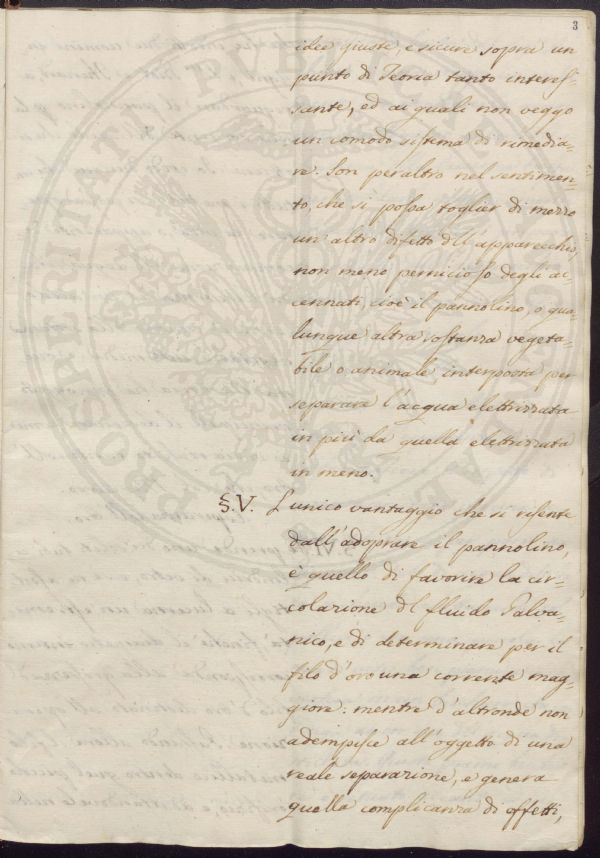 3
idee giuste, e sicure sopra un
punto di Teoria tanto interes-
sante, ed ai quali non veggo
un comodo sistema di rimedia-
re. Son peraltro nel sentimen-
to, che si possa toglier di mezzo
un altro difetto dll'apparecchio,
non meno pernicioso degli ac-
cennati, cioè il pannolino, o qua-
lunque altra sostanza vegeta-
bile o animale, interposta per
separare l'acqua elettrizzata
in più da quella elettrizzata
in meno.
§.V. L'unico vantaggio che si risente
dall'adoprare il pannolino,
è quello di favorire la cir-
colazione dl fluido Galva-
nico, e di determinare per il
filo d'oro una corrente mag-
giore: mentre d'altronde non
adempisce all'oggetto di una
reale separazione, e genera
quella complicanza di effetti,
PROSPERITATI PUBLICAE